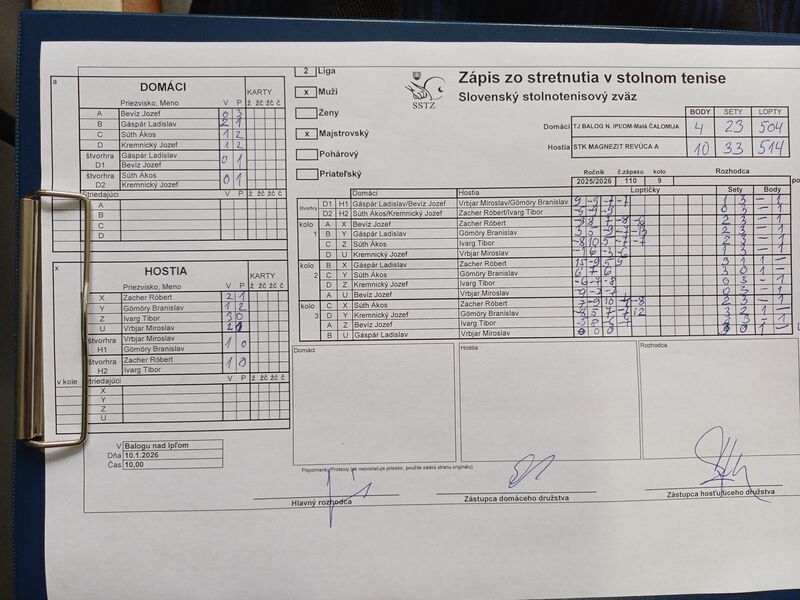 2 Liga
x Muži
Ženy
x Majstrovský
Pohárový
Priateľský
SSTZ
Zápis zo stretnutia v stolnom tenise
Slovenský stolnotenisový zväz
BODY SETY LOPTY
Domáci TJ BALOG N. IPĽOM-Malá ČALOMIJA 4 23 504
Hostia STK MAGNEZIT REVÚCA A 10 33 514
Ročník č.zápasu kolo Rozhodca
2025/2026 110 9
a
DOMÁCI
Priezvisko, Meno V P KARTY
ž žč žč č
A Bevíz Jozef 0 3
B Gáspár Ladislav 2 1
C Súth Ákos 1 2
D Kremnický Jozef 1 2
štvorhra D1 Gáspár Ladislav 0 1
Bevíz Jozef
štvorhra D2 Súth Ákos 0 1
Kremnický Jozef
Striedajúci V P ž žč žč č
A
B
C
D
x
HOSTIA
Priezvisko, Meno V P KARTY
ž žč žč č
X Zacher Róbert 2 1
Y Gömöry Branislav 1 2
Z Ivarg Tibor 3 0
U Vrbjar Miroslav 2 1
štvorhra H1 Vrbjar Miroslav 1 0
Gömöry Branislav
štvorhra H2 Zacher Róbert 1 0
Ivarg Tibor
v kole
Striedajúci V P ž žč žč č
X
Y
Z
U
Domáci Hostia Loptičky Sety Body
štvorhry D1 H1 Gáspár Ladislav/Bevíz Jozef Vrbjar Miroslav/Gömöry Branislav 1 3 – 1
D2 H2 Súth Ákos/Kremnický Jozef Zacher Róbert/Ivarg Tibor 0 3 – 1
kolo 1 A X Bevíz Jozef Zacher Róbert 2 3 – 1
B Y Gáspár Ladislav Gömöry Branislav 2 3 – 1
C Z Súth Ákos Ivarg Tibor -8 10 5 -7 -7 2 3 – 1
D U Kremnický Jozef Vrbjar Miroslav 1 3 – 1
kolo 2 B X Gáspár Ladislav Zacher Róbert 15 -9 5 9 3 1 1 –
C Y Súth Ákos Gömöry Branislav 6 7 6 3 0 1 –
D Z Kremnický Jozef Ivarg Tibor -6 -7 -8 0 3 – 1
A U Bevíz Jozef Vrbjar Miroslav 0 3 – 1
kolo 3 C X Súth Ákos Zacher Róbert 2 3 – 1
D Y Kremnický Jozef Gömöry Branislav -8 5 7 -7 12 3 2 1 –
A Z Bevíz Jozef Ivarg Tibor
B U Gáspár Ladislav Vrbjar Miroslav 0 0 0
Domáci
Hostia
Rozhodca
V Balogu nad Ipľom
Dňa 10.1.2026
Čas 10,00
Pripomienky/Protesty (ak nepostačuje priestor, použite zadnú stranu originálu)
Hlavný rozhodca
Zástupca domáceho družstva
Zástupca hosťujúceho družstva